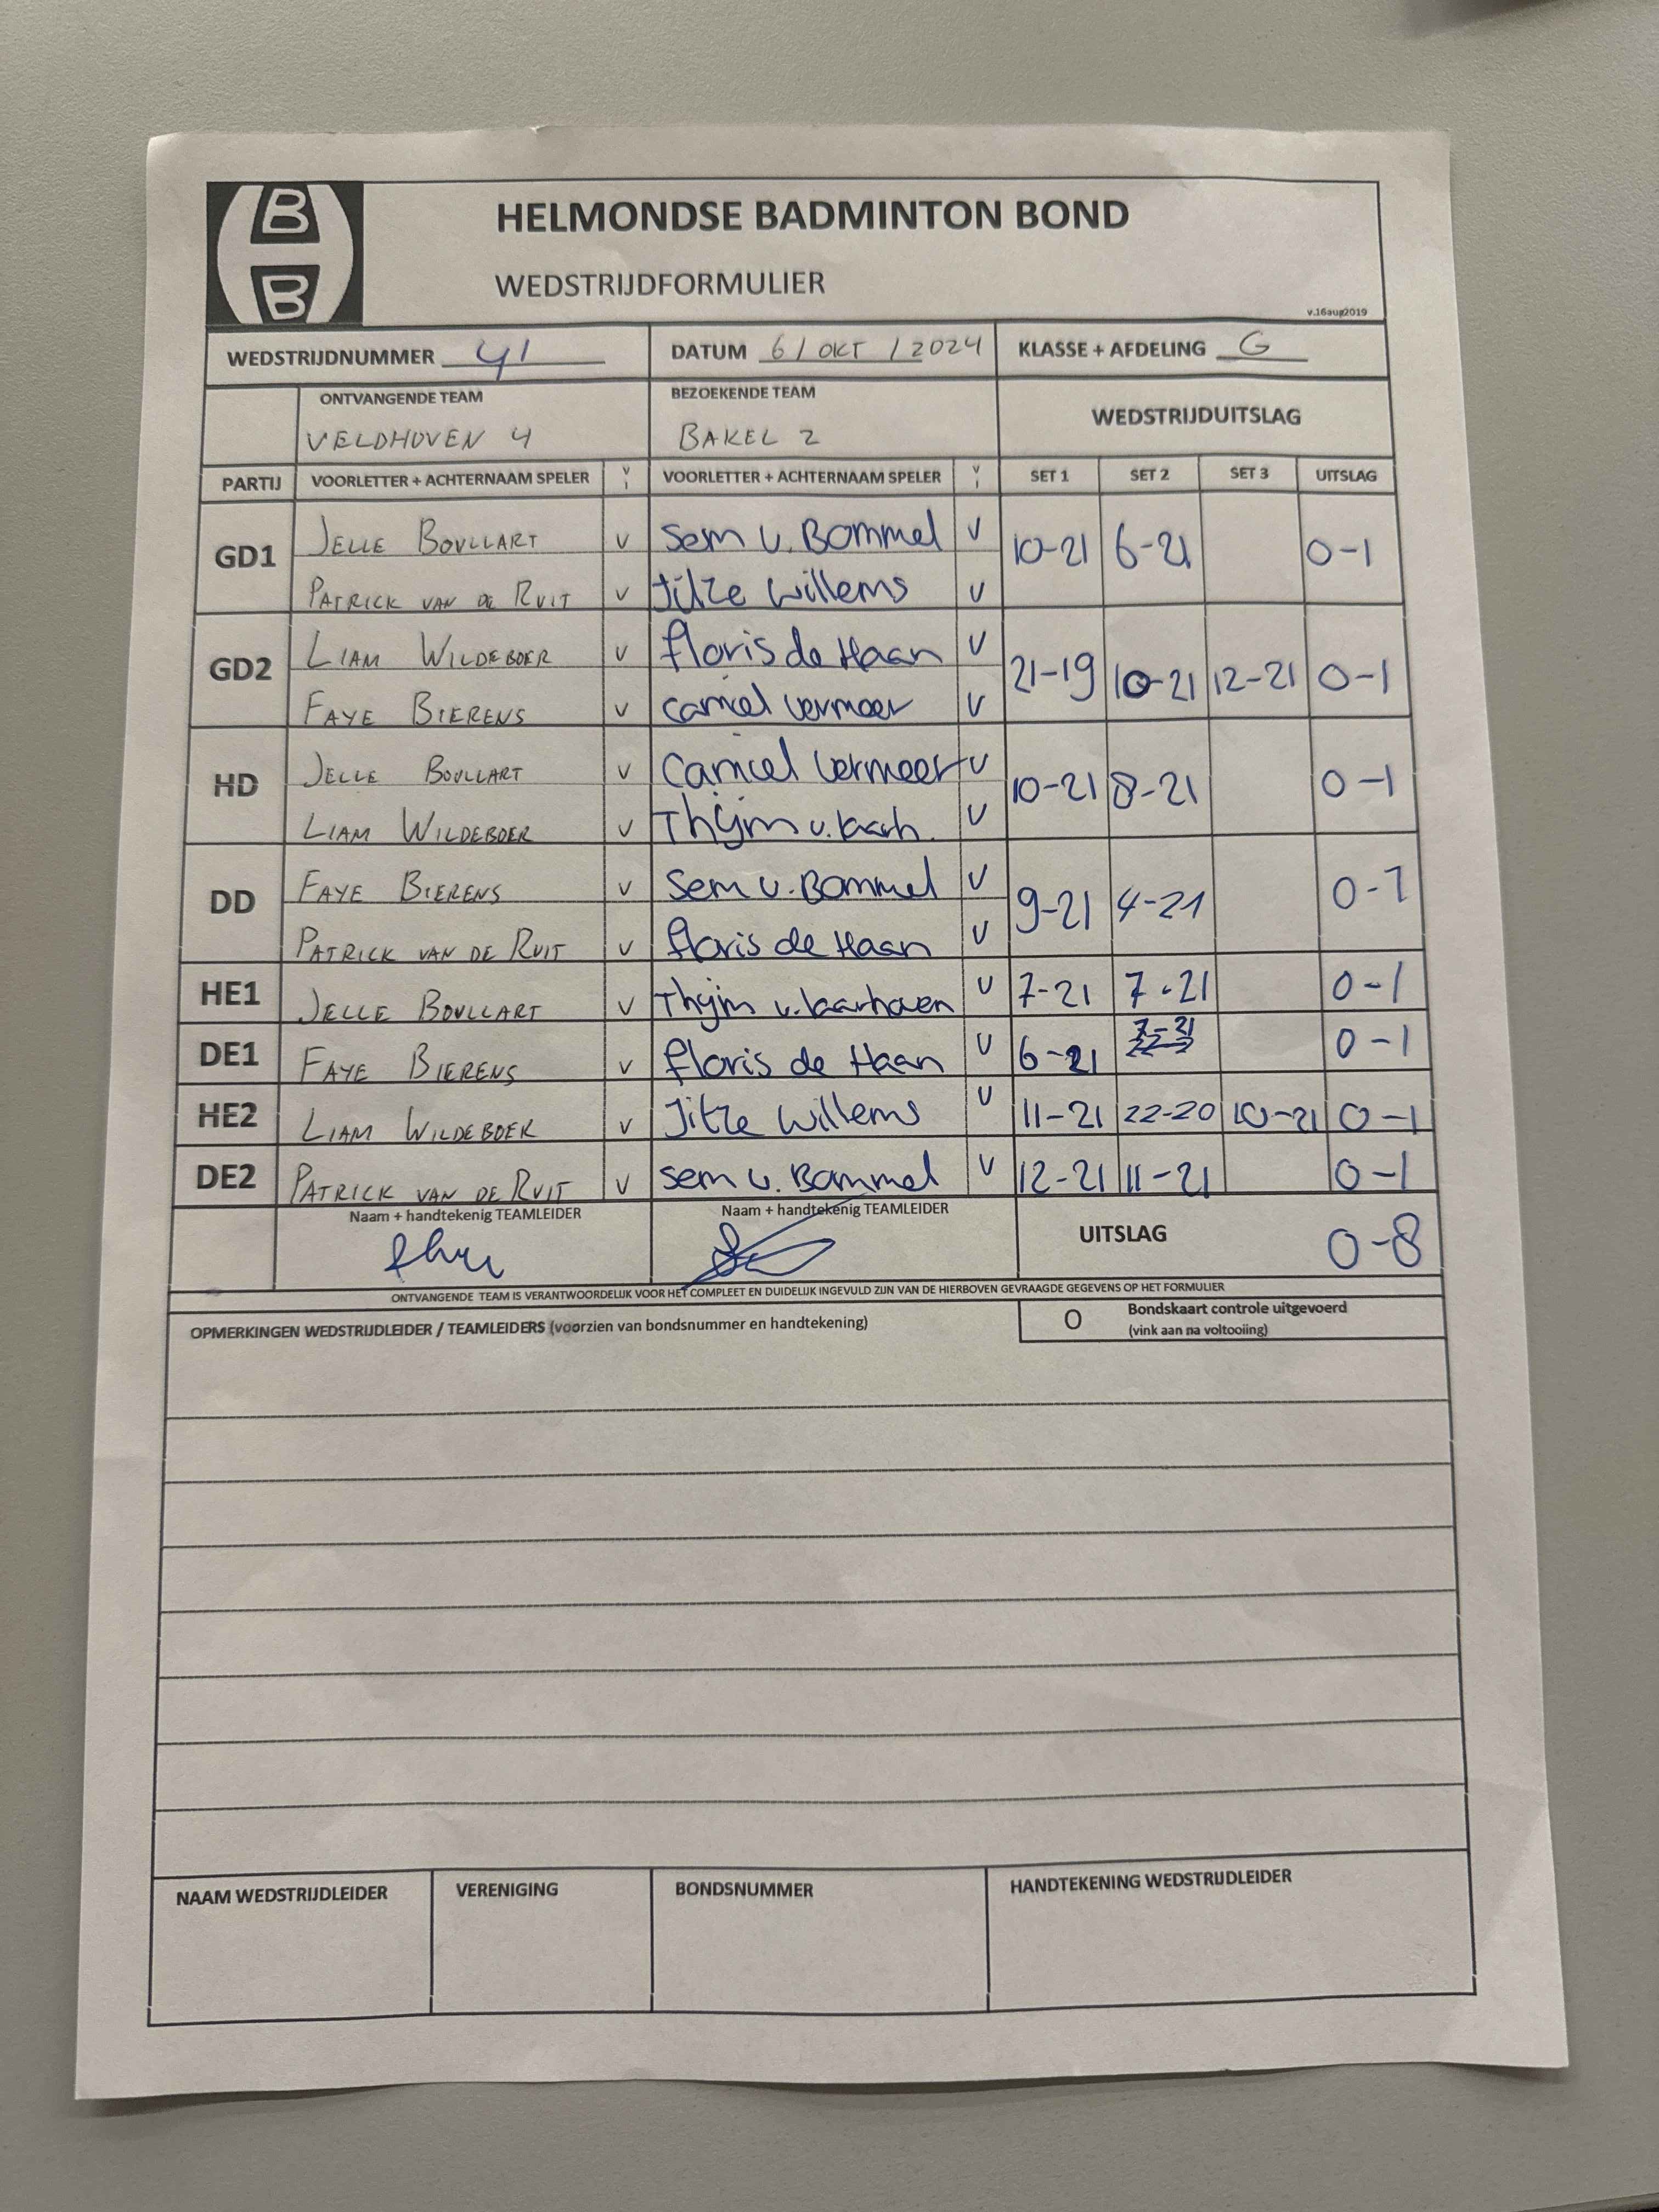 B
B
HELMONDSE BADMINTON BOND
WEDSTRIJDFORMULIER
v.16aug2019
WEDSTRIJDNUMMER 41 DATUM 6 / OKT / 2024 KLASSE + AFDELING G
ONTVANGENDE TEAM BEZOEKENDE TEAM WEDSTRIJDUITSLAG
VELDHOVEN 4 BAKEL 2
PARTIJ VOORLETTER + ACHTERNAAM SPELER V VOORLETTER + ACHTERNAAM SPELER V SET 1 SET 2 SET 3 UITSLAG
GD1 JELLE BOULLART V Sem v. Bommel V 10-21 6-21 0-1
PATRICK VAN DE RUIT V Jitze Willems V
GD2 LIAM WILDEBOER V floris de Haan V 21-19 10-21 12-21 0-1
FAYE BIERENS V Camiel Vermeer V
HD JELLE BOULLART V Camiel Vermeer V 10-21 8-21 0-1
LIAM WILDEBOER V Thijm v. Laarh. V
DD FAYE BIERENS V Sem v. Bommel V 9-21 4-21 0-1
PATRICK VAN DE RUIT V floris de Haan V
HE1 JELLE BOULLART V Thijm v. Laarhoven V 7-21 7-21 0-1
DE1 FAYE BIERENS V floris de Haan V 6-21 7-21 0-1
HE2 LIAM WILDEBOER V Jitze Willems V 11-21 22-20 10-21 0-1
DE2 PATRICK VAN DE RUIT V Sem v. Bommel V 12-21 11-21 0-1
Naam + handtekenig TEAMLEIDER Naam + handtekenig TEAMLEIDER UITSLAG 0-8
ONTVANGENDE TEAM IS VERANTWOORDELIJK VOOR HET COMPLEET EN DUIDELIJK INGEVULD ZIJN VAN DE HIERBOVEN GEVRAAGDE GEGEVENS OP HET FORMULIER
OPMERKINGEN WEDSTRIJDLEIDER / TEAMLEIDERS (voorzien van bondsnummer en handtekening) O Bondskaart controle uitgevoerd
(vink aan na voltooiing)
NAAM WEDSTRIJDLEIDER VERENIGING BONDSNUMMER HANDTEKENING WEDSTRIJDLEIDER